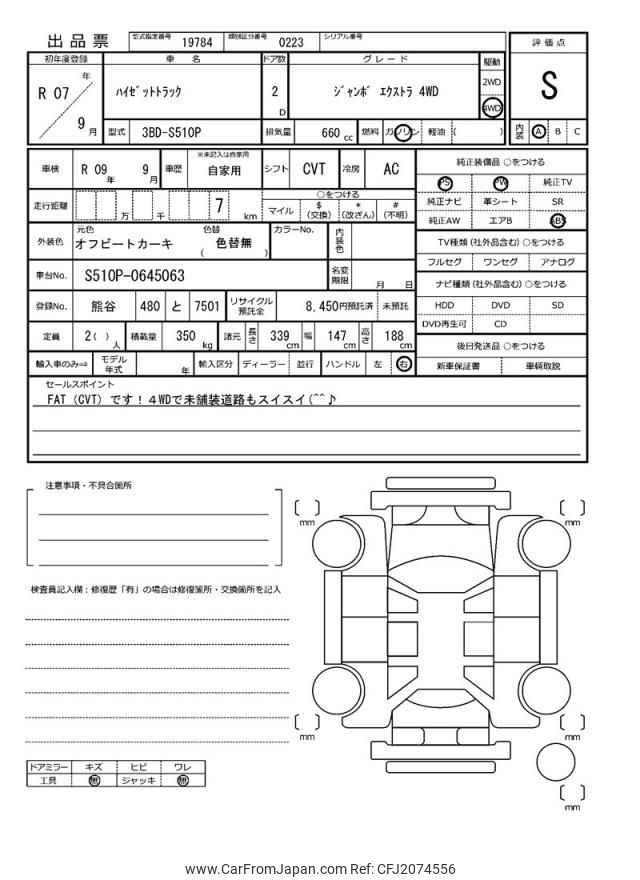 出品票 型式指定番号 19784 類別区分番号 0223 シリアル番号
評価点
S
内装 A B C
初年度登録 車名 ドア数 グレード 駆動
R 07 年 9 月
ハイゼットトラック 2 D ジャンボ エクストラ 4WD
2WD
4WD
型式 3BD-S510P 排気量 660 cc 燃料 ガソリン 軽油 ( )
車検 R 09 年 9 月 車歴 ※未記入は自家用 自家用 シフト CVT 冷房 AC
走行距離 万 千 7 km
○をつける
マイル $ (交換) * (改ざん) # (不明)
外装色 元色 オフビートカーキ 色替 ( 色替無 ) カラーNo. 内装色
車台No. S510P-0645063 名変期限 月 日
登録No. 熊谷 480 と 7501 リサイクル預託金 8,450円預託済 未預託
定員 2( ) 人 積載量 350 kg 諸元 長さ 339 cm 幅 147 cm 高さ 188 cm
輸入車のみ⇒ モデル年式 年 輸入区分 ディーラー 並行 ハンドル 左 右
純正装備品 ○をつける
PS PW 純正TV
純正ナビ 革シート SR
純正AW エアB ABS
TV種類 (社外品含む) ○をつける
フルセグ ワンセグ アナログ
ナビ種類 (社外品含む) ○をつける
HDD DVD SD
DVD再生可 CD
後日発送品 ○をつける
新車保証書 車輌取説
セールスポイント
FAT (CVT) です！４WDで未舗装道路もスイスイ(^^♪
注意事項・不具合箇所
検査員記入欄：修復歴「有」の場合は修復箇所・交換箇所を記入
mm
mm
mm
mm
mm
ドアミラー キズ ヒビ ワレ
工具 無 ジャッキ 無
www.CarFromJapan.com Ref: CFJ2074556